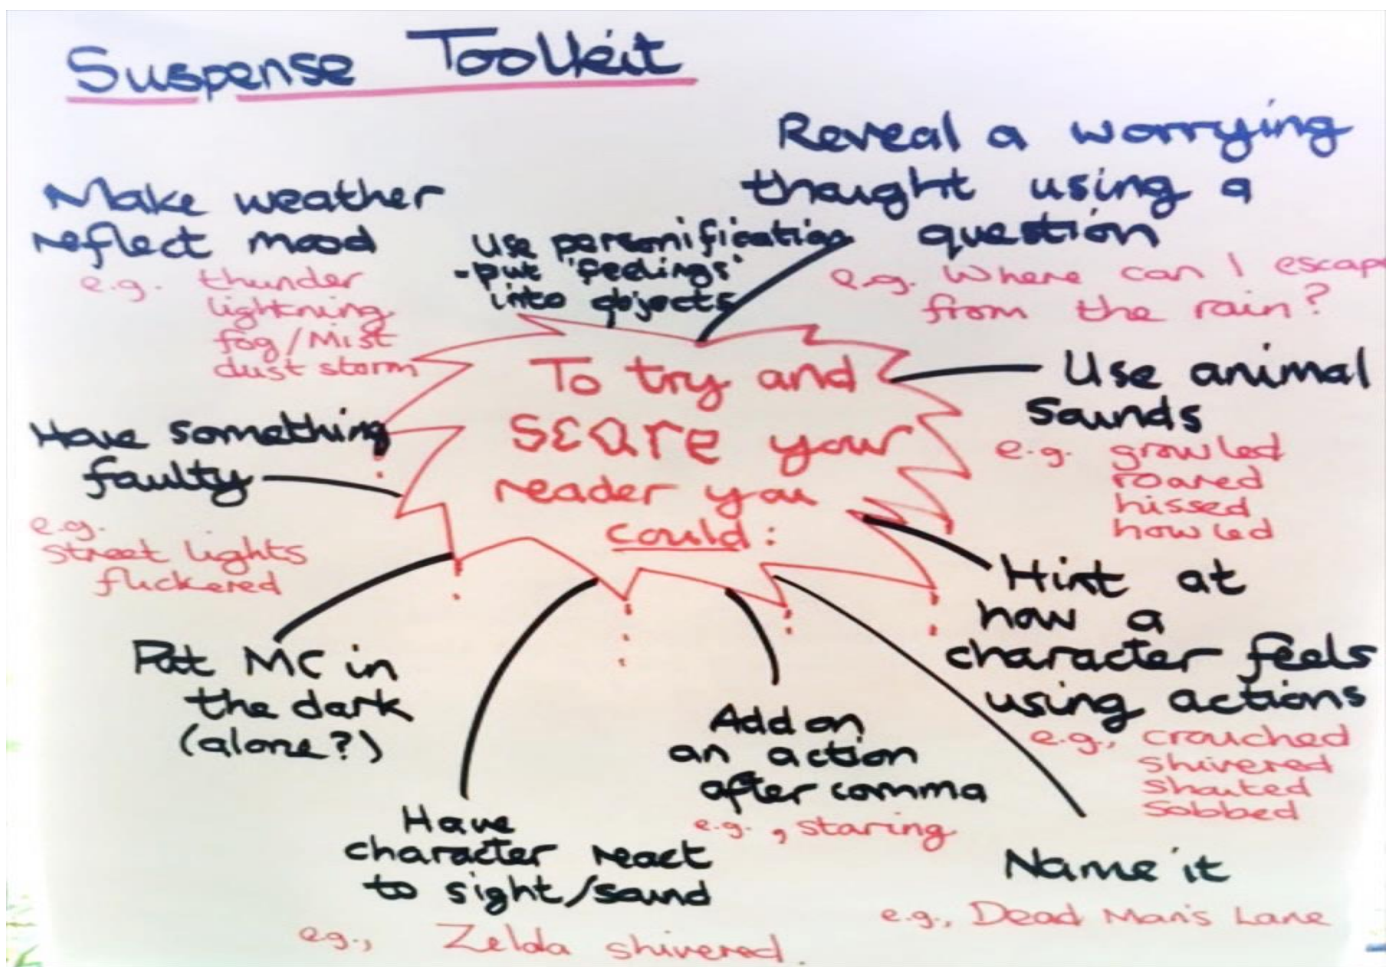 Suspense Toolkit
Make weather
reflect mood
e.g. thunder
lightning
fog/Mist
dust storm
Use personification
- put 'feelings'
into objects
Reveal a worrying
thought using a
question
e.g. Where can I escape
from the rain?
To try and
scare your
reader you
could:
Use animal
sounds
e.g. growled
roared
hissed
howled
Have something
faulty
e.g.
street lights
flickered
Hint at
how a
character feels
using actions
e.g., crouched
shivered
shouted
sobbed
Put MC in
the dark
(alone?)
Have
character react
to sight/sound
e.g., Zelda shivered.
Add on
an action
after comma
e.g. , staring
Name it
e.g., Dead Man's Lane